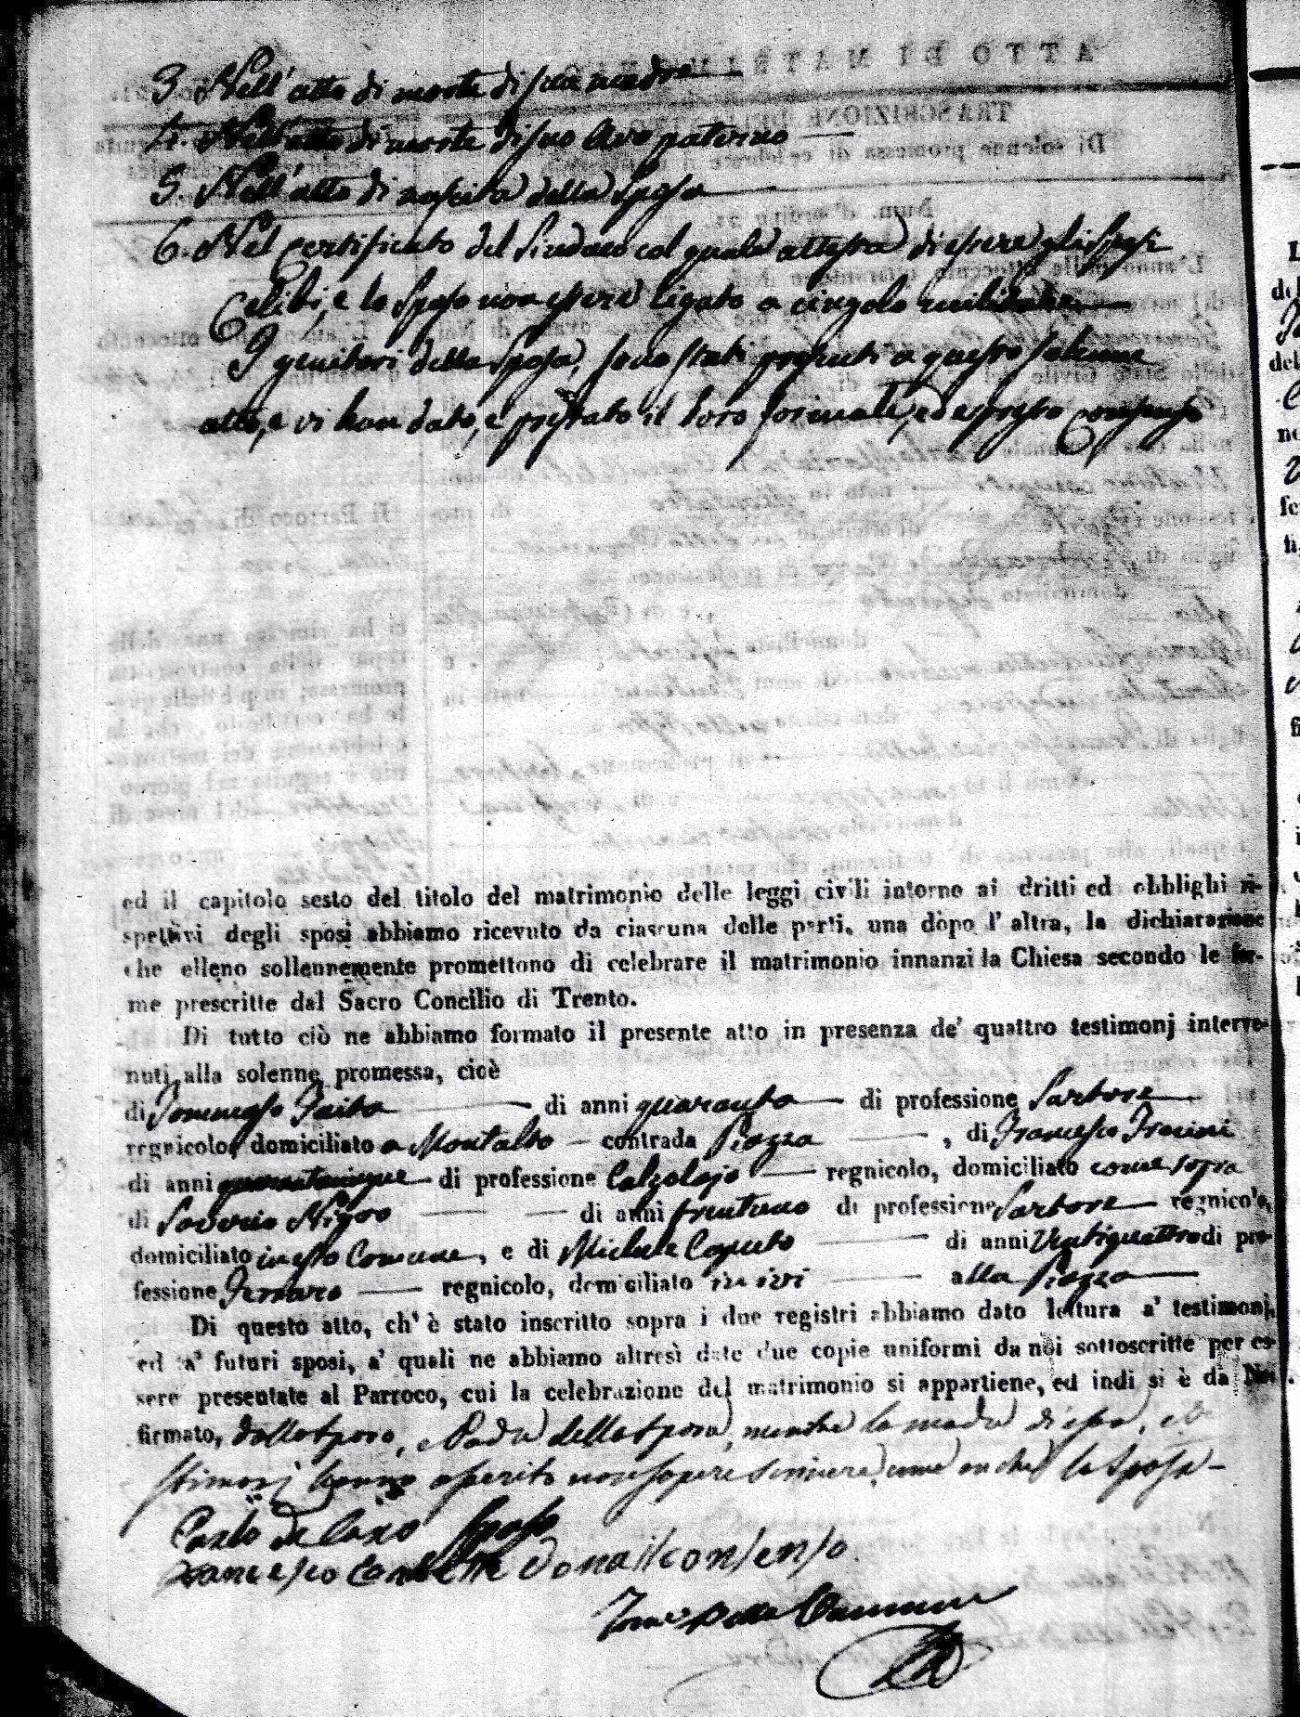 3. Nell'atto di morte di sua madre
4. Nell'atto di morte di suo Avo paterno
5. Nell'atto di nascita della Sposa
6. Nel Certificato del Sindaco col quale attesta di essere gli Sposi
Celibi, e lo Sposo non essere ligato a cingolo militare
I genitori della Sposa, sono stati presenti a questo solenne
atto, e vi han dato, e prestato il loro formale, ed espresso Consenso
ed il capitolo sesto del titolo del matrimonio delle leggi civili intorno ai dritti ed obblighi ri-
spettivi degli sposi abbiamo ricevuto da ciascuna delle parti, una dòpo l'altra, la dichiarazione
che elleno sollennemente promettono di celebrare il matrimonio innanzi la Chiesa secondo le for-
me prescritte dal Sacro Concilio di Trento.
Di tutto ciò ne abbiamo formato il presente atto in presenza de' quattro testimonj interve-
nuti alla solenne promessa, cioè
di Tommaso Faita di anni quaranta di professione Sartore
regnicolo, domiciliato a Montalto contrada Piazza, di Francesco
di anni quarantacinque di professione Calzolajo regnicolo, domiciliato come sopra
di Saverio Nigro di anni trentuno di professione Sartore regnicolo,
domiciliato in esso Comune, e di Michele Caputo di anni Ventiquattro di pro-
fessione Ferraro regnicolo, domiciliato ivi alla Piazza
Di questo atto, ch' è stato inscritto sopra i due registri abbiamo dato lettura a' testimonj,
ed a' futuri sposi, a' quali ne abbiamo altresì date due copie uniformi da noi sottoscritte per es-
sere presentate al Parroco, cui la celebrazione del matrimonio si appartiene, ed indi si è da Noi
firmato, dallo Sposo, e Padre della Sposa, mentre la madre di essa, e te
stimonj hanno asserito non sapere scrivere, come anche la Sposa
Carlo de Caro Sposo
Francesco dona il consenso